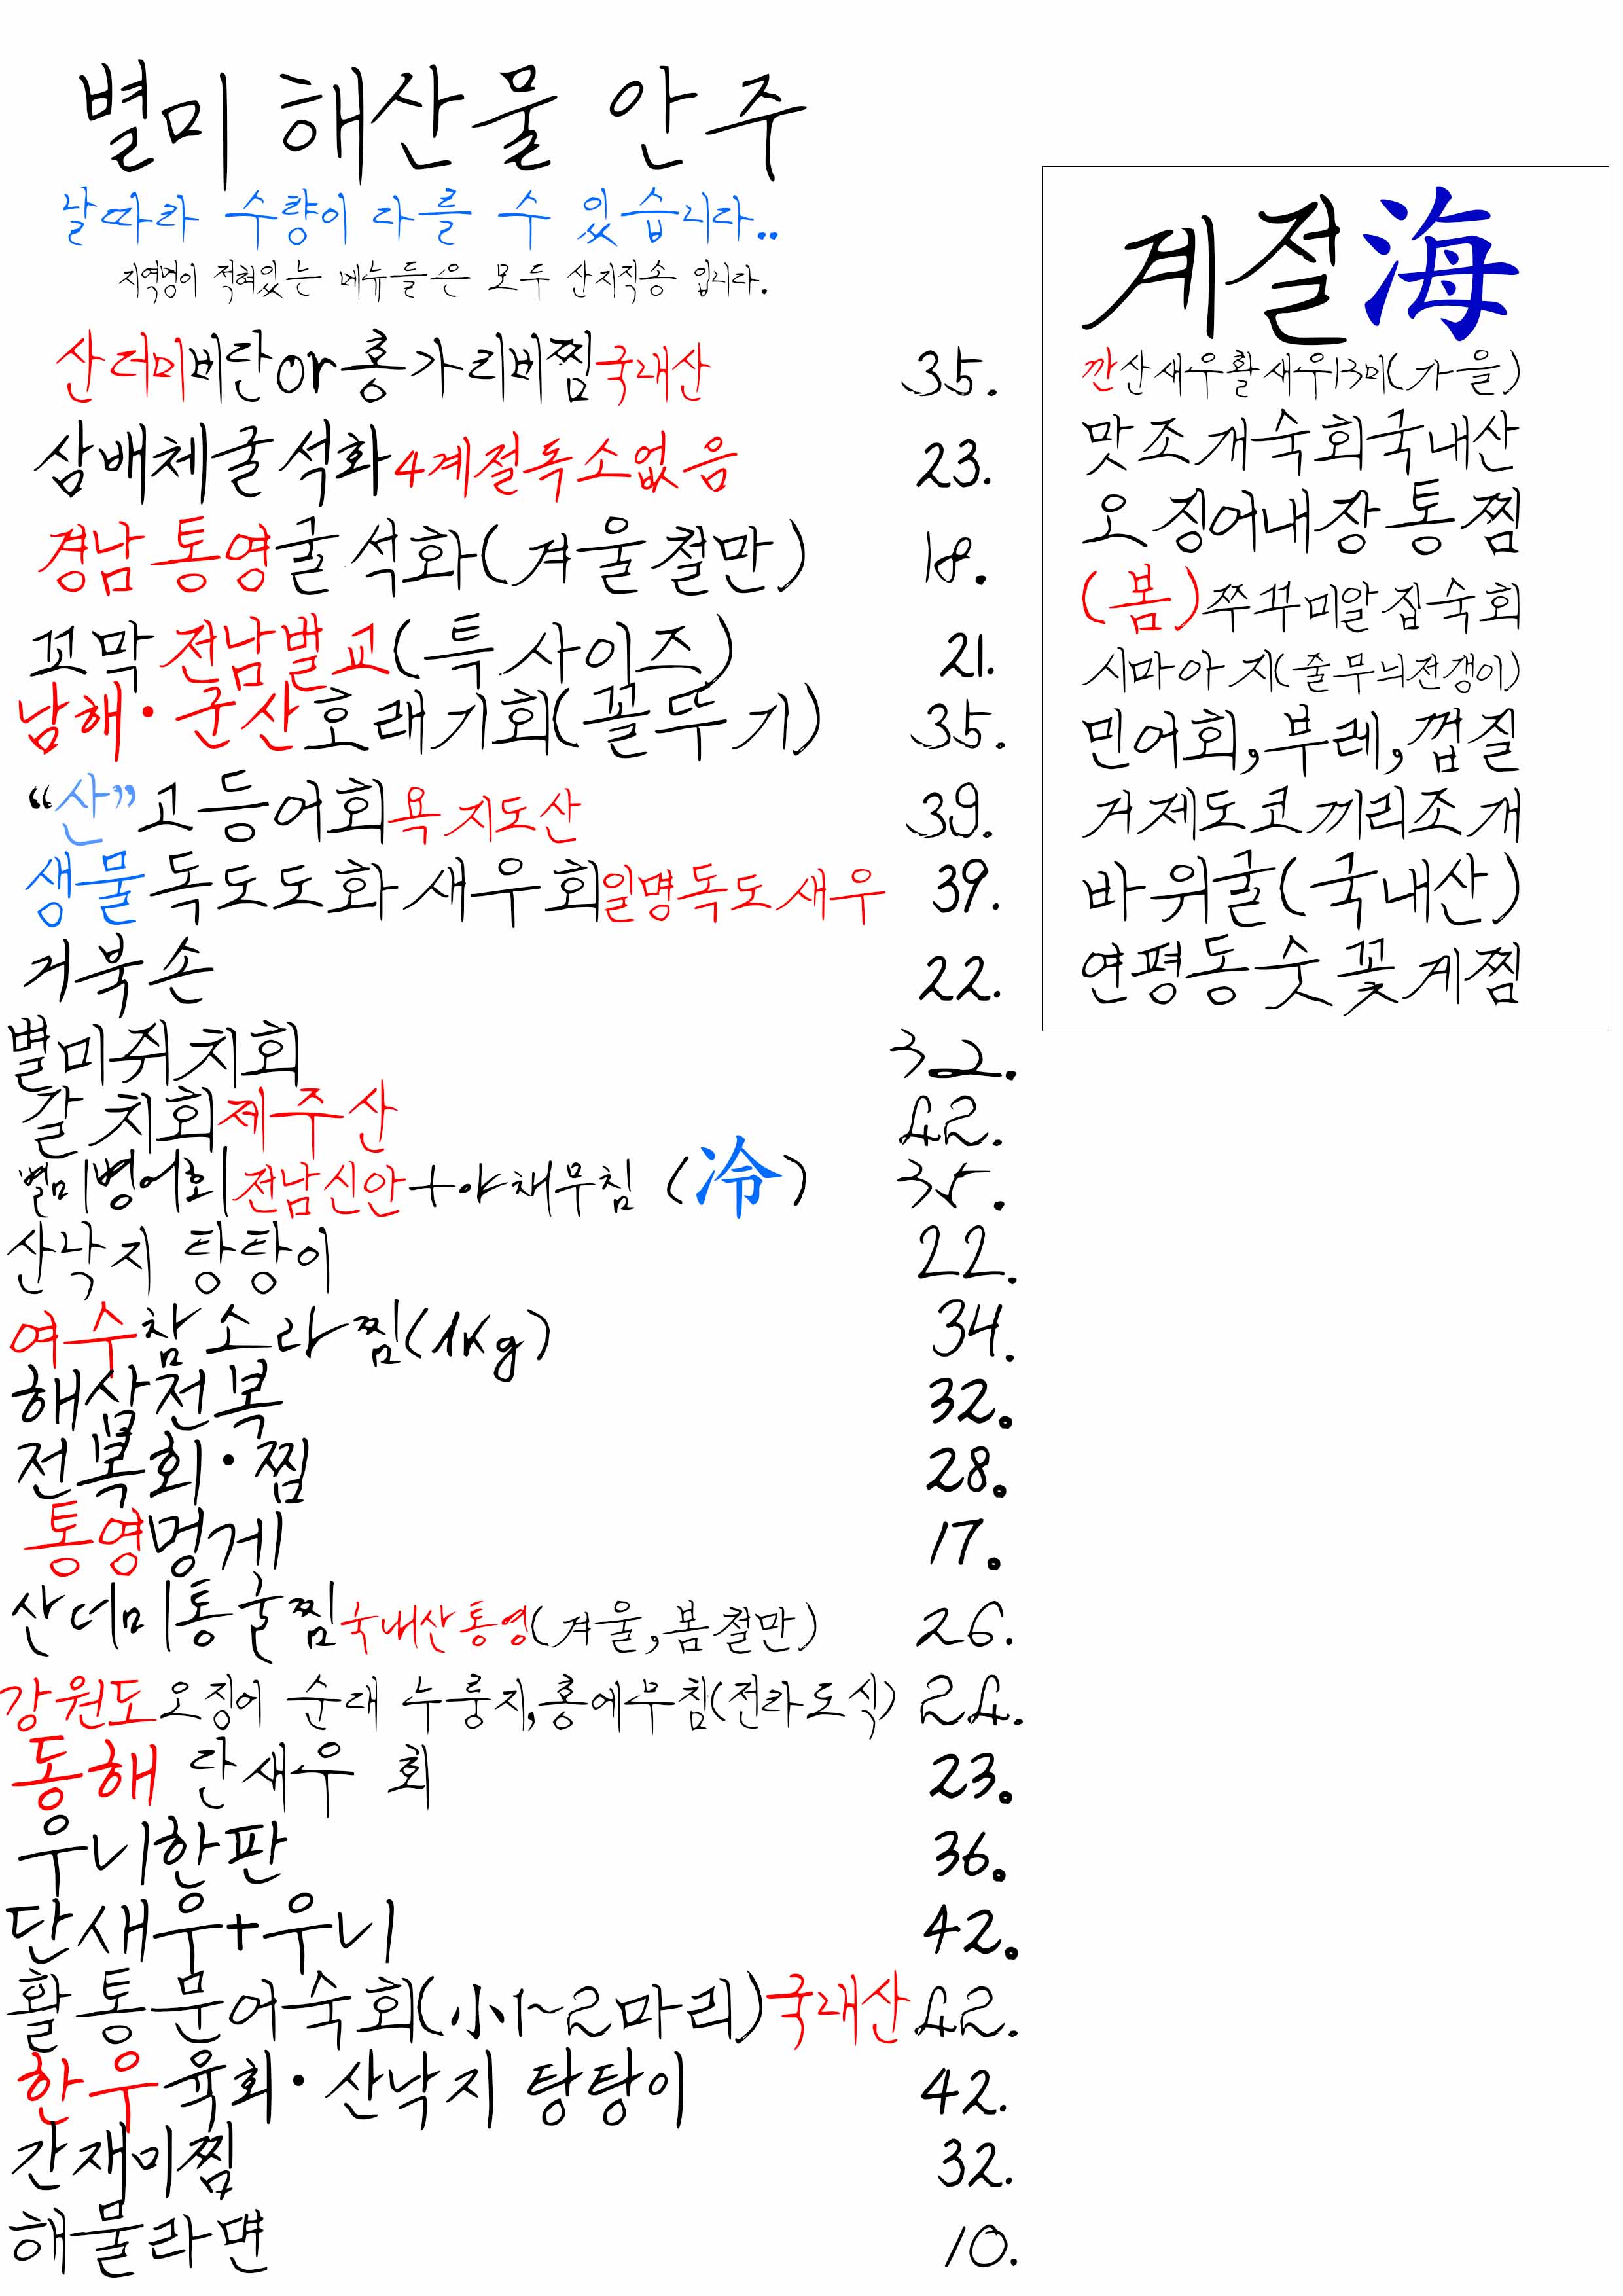 별미 해산물 안주
날따라 수량이 다를 수 있습니다..
지역명이 적혀있는 메뉴들은 모두 산지직송 입니다.
산더미비단or홍가리비찜국내산 35.
삼배체굴석화4계절독소없음 23.
경남통영굴석화(겨울철만) 18.
꼬막전남벌교(특사이즈) 21.
남해·군산호래기회(꼴뚜기) 35.
“산”고등어회욕지도산 39.
생물독도도화새우회일명독도새우 39.
거북손 22.
별미쥐치회 32.
갈치회제주산 42.
별미병어회전남신안+야채무침 (冷) 35.
산낙지 탕탕이 22.
여수참소라찜(1Kg) 34.
해삼전복 32.
전복회·찜 28.
통영멍게 17.
산더미통굴찜국내산통영(겨울,봄철만) 26.
강원도오징어 순대 누룽지,홍어무침(전라도식) 24.
동해 단새우 회 23.
우니한판 36.
단새웅+우니 42.
활통문어숙회(小1~2마리)국내산 42.
한우육회·산낙지 탕탕이 42.
간재미찜 32.
해물라면 10.
계절海
깐산새우활새우13미(가을)
맛조개숙회국내산
오징어내장통찜
(봄)쭈꾸미알집숙회
시마아지(줄무늬전갱이)
민어회,부레,껍질
거제도코끼리조개
바위굴(국내산)
연평동숫꽃게찜